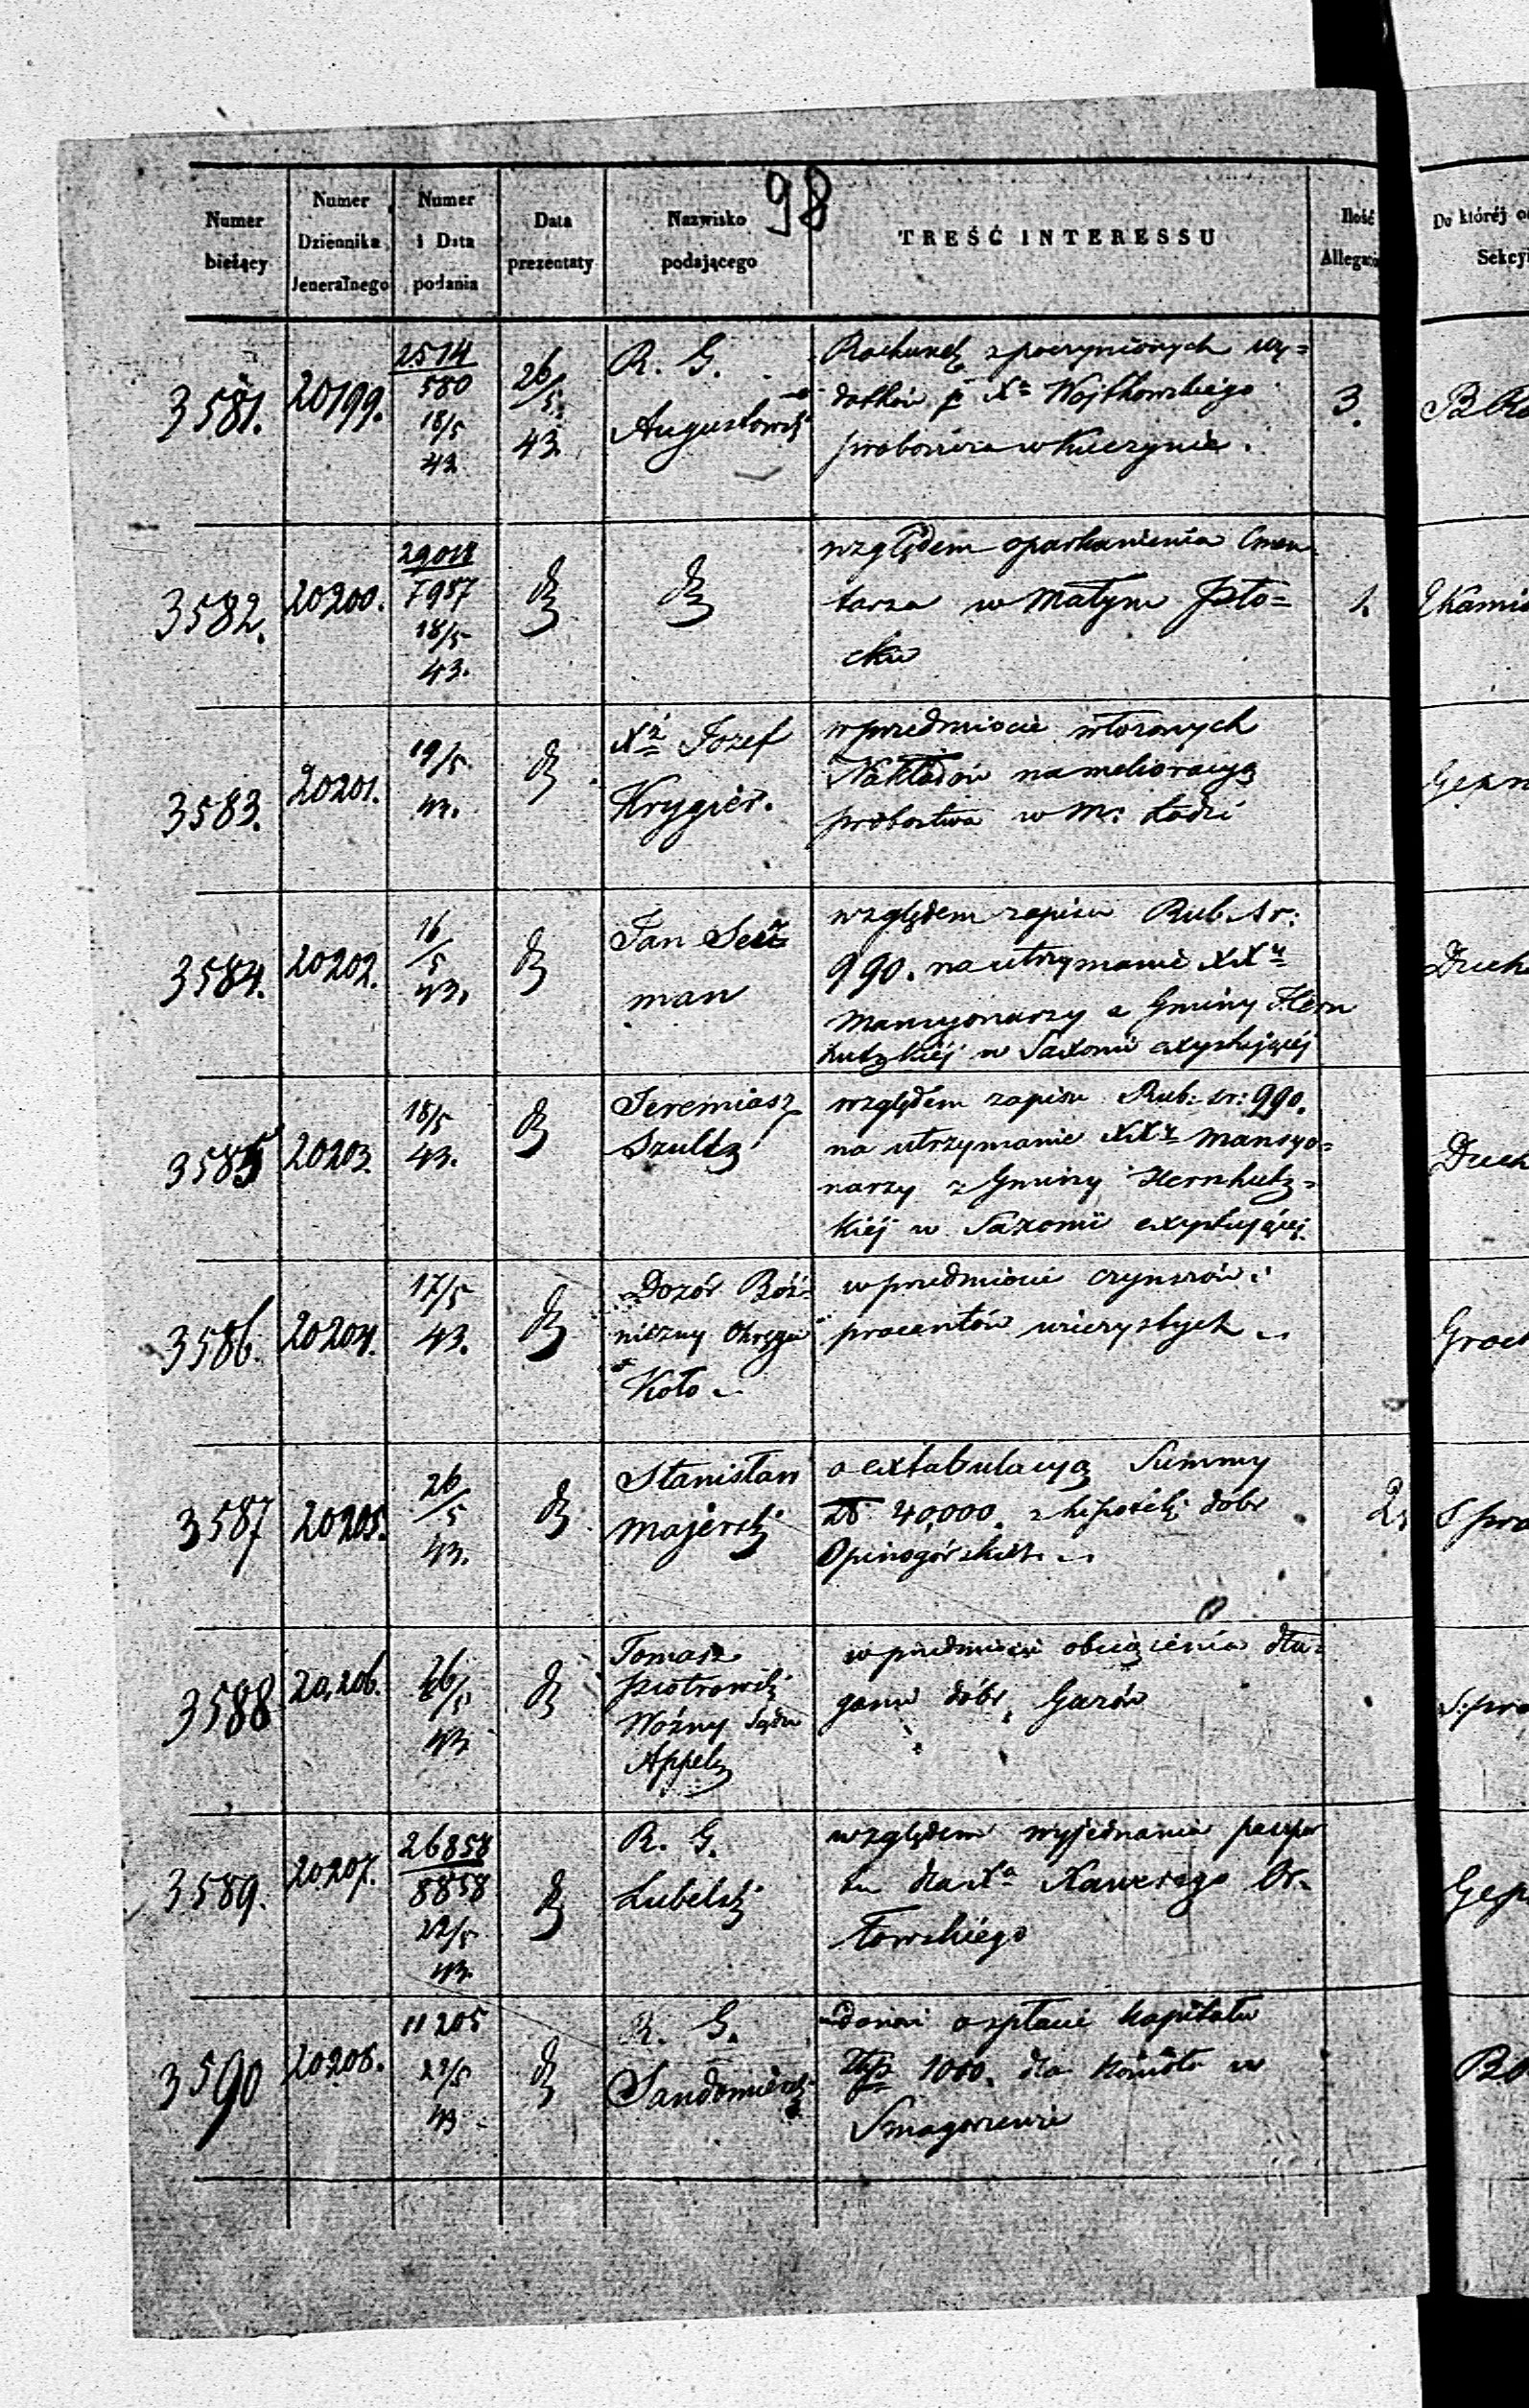 98
Numer bieżący
Numer Dziennika Jeneralnego
Numer i Data podania
Data prezentaty
Nazwisko podającego
TREŚĆ INTERESSU
Ilość
Do któréj
3581.
20199.
2514
580
18/5
43
26/5
43.
R. G.
Augustowski
Rachunek z poczynionych wy=
datków p Xa Wojtkowskiego
proboszcza w Kuczynie.
3.
3582.
20200.
29018
7987
18/5
43.
dº
dº
względem oparkanienia Cmen
tarza w Małym Pło=
cku
1.
3583.
20201.
19/5
43.
dº
Xż Jozef
Krygier.
w przedmiocie włożonych
Nakładów na melioracyą
probostwa w M: Łodzi
3584.
20202.
16/5
43.
dº
Jan
man
względem zapisu Rub. sr:
990. na utrzymanie XXy
Mansyonarzy z Gminy Hern
hutzkiéj w Saxonii exystującéj
3585
20203.
18/5
43.
dº
Jeremiasz
Szultz
względem zapisu Rub: sr: 990.
na utrzymanie XXy Mansyo=
narzy z Gminy Hernhutz=
kiéj w Saxonii exystującéj.
3586.
20204.
17/5
43.
dº
Dozór Bóż=
niczny Okręgu
Koło
w przedmiocie czynszów i
procentów wieczystych
3587
20205.
26/5
43.
dº
Stanisław
Majerski
o extabulacyą Summy
Zł 40,000. z hipoteki dobr
Opinogórskich.
2.
3588
20,206.
26/5
43
dº
Tomasz
Piotrowski
Woźny Sądu
Appel
w przedmiocie obciążenia dłu=
gami dóbr Guzów
3589.
20207.
26858
8858
22/5
43.
dº
R. G.
Lubelski
względem wyjednania paszpor
tu dla Xa Xawerego Or=
łowskiego
3590
20208.
11205
22/5
43
dº
R. G.
Sandomierski
donosi o spłacie kapitału
Złp 1000. dla kościoła w
Smagorzewie